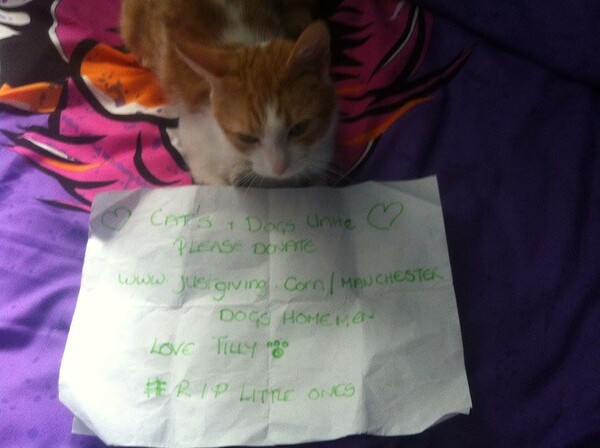 CAT'S + DOGS UNITE
PLEASE DONATE
www.justgiving.com/MANCHESTER
DOGS HOME MEN
LOVE TILLY
# R I P LITTLE ONES